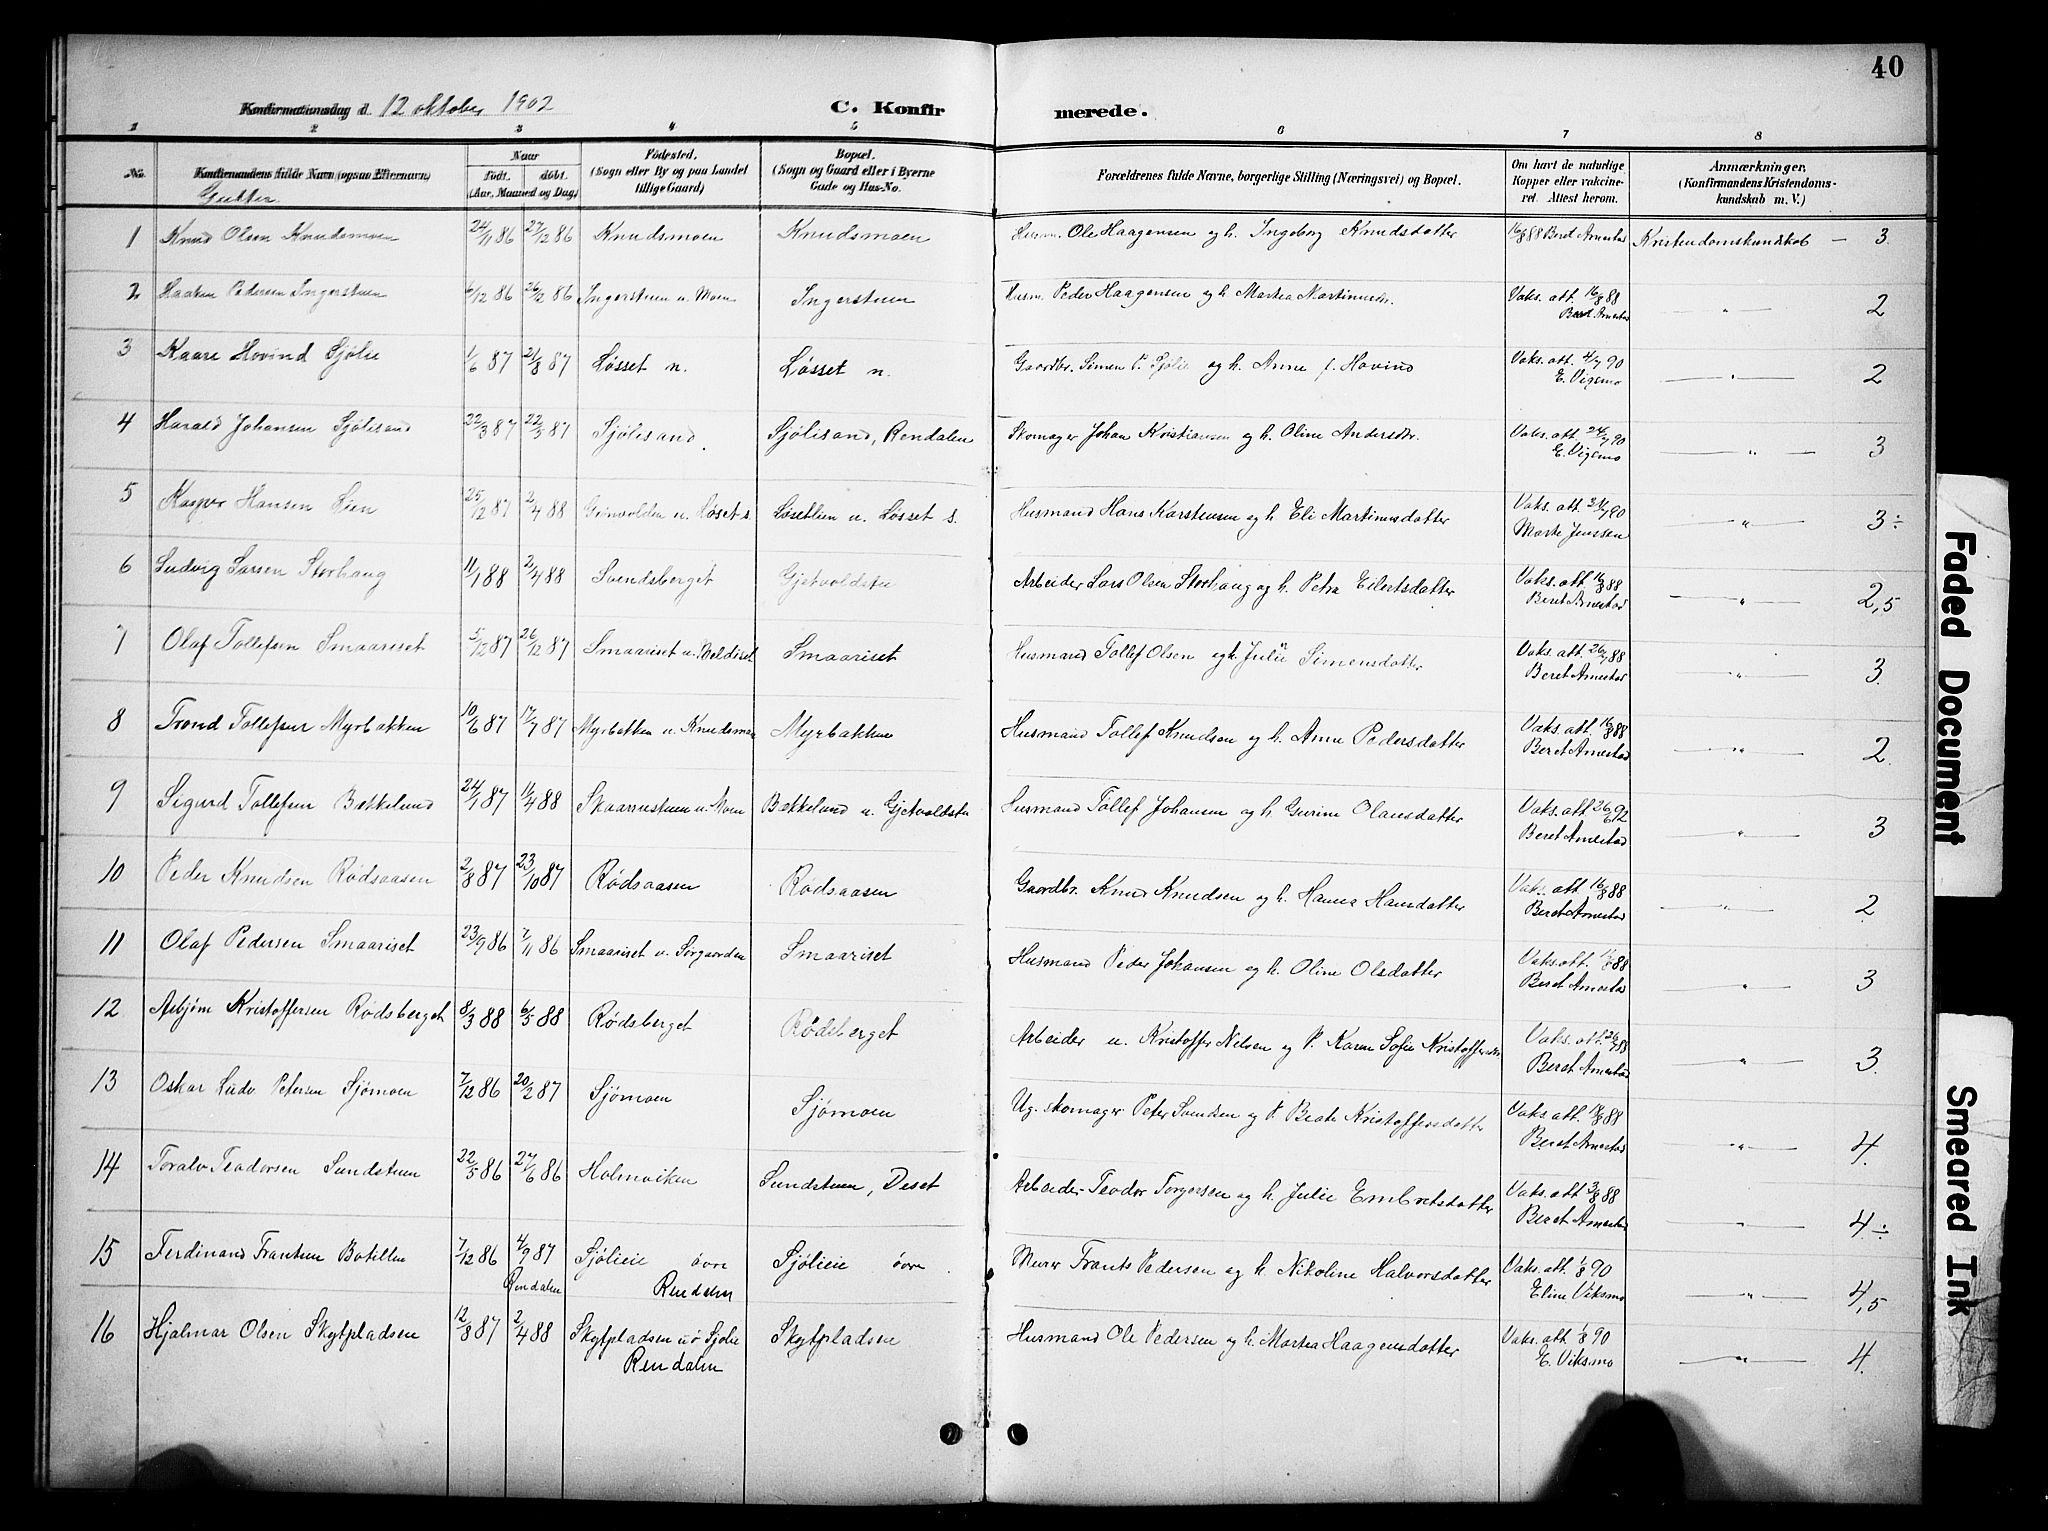 40
Konfirmationsdag d. 12 oktober 1902 C. Konfirmerede.
1 2 3 4 5 6 7 8
No. Konfirmandens fulde Navn (ogsaa Efternavn) Naar Født. døbt. (Aar, Maaned og Dag) Fødested. (Sogn eller By og paa Landet tillige Gaard) Bopæl. (Sogn og Gaard eller i Byerne Gade og Hus-No. Forældrenes fulde Navne, borgerlige Stilling (Næringsvei) og Bopæl. Om havt de naturlige Kopper eller vakcineret. Attest herom. Anmærkninger. (Konfirmandens Kristendomskundskab m. V.)
Gutter
1 Knud Olsen Knudsmoen 24/11 86 27/12 86 Knudsmoen Knudsmoen Husm. Ole Haagensen og h. Ingeborg Knudsdatter 16/8 88 Beret Arnestad Kristendomskundskab — 3.
2 Haaken Pedersen Ingerstuen 6/12 86 26/12 86 Ingerstuen u. Moen Ingerstuen Husm. Peder Haagensen og h. Martea Martinusdr. Vaks. att. 16/8 88 Beret Arnestad — " — 2
3 Kaare Hovind Sjølie 1/6 87 21/8 87 Løsset n. Løsset n. Gaardbr. Simen P. Sjølie og h. Anne f. Hovind Vaks. att. 4/7 90 E. Vigsmo — " — 2
4 Harald Johansen Sjølisand 22/3 87 22/5 87 Sjølisand. Sjølisand, Rendalen Skomager Johan Kristiansen og h. Oline Andersdtr. Vaks. att. 24/7 90 E. Vigsmo — " — 3
5 Kasper Hansen Lien 25/12 87 2/4 88 Grinvolden u. Løset s. Løsetlien u. Løsset s. Husmand Hans Karstensen og h. Eli Martinusdatter Vaks. att. 24/7 90 Marte Jenssen — " — 3÷
6 Ludvig Larsen Storhaug 11/1 88 2/4 88 Svendsberget Gjetvoldstu Arbeider Lars Olsen Storhaug og h. Petra Eilertsdatter Vaks. att. 16/8 88 Beret Arnestad — " — 2,5
7 Olaf Tollefsen Smaariset 5/12 87 26/12 87 Smaariset u. Beldiset Smaariset Husmand Tollef Olsen og h. Julie Simensdatter Vaks. att. 26/7 88 Beret Arnestad — " — 3.
8 Trond Tollefsen Myrbakken 10/6 87 17/7 87 Myrbakken u. Knudsmoen Myrbakken Husmand Tollef Knudsen og h. Anne Pedersdatter Vaks. att. 16/8 88 Beret Arnestad — " — 2.
9 Sigurd Tollefsen Bækkelund 24/1 87 11/4 88 Skaarnstuen u. Moen Bækkelund u. Gjetvoldstu Husmand Tollef Johansen og h. Gurine Olausdatter Vaks. att. 26/6 92 Beret Arnestad — " — 3
10 Peder Knudsen Rødsaasen 2/8 87 23/10 87 Rødsaasen Rødsaasen Gaardbr. Knud Knudsen og h. Hanna Hansdatter Vaks. att. 16/8 88 Beret Arnestad — " — 2
11 Olaf Pedersen Smaariset 23/9 86 7/11 86 Smaariset u. Sørgaarden Smaariset Husmand Peder Johansen og h. Oline Olsdatter Vaks. att. 88 Beret Arnestad — " — 3
12 Asbjørn Kristoffersen Rødsberget 8/3 88 6/5 88 Rødsberget Rødsberget Arbeider u. Kristoffer Nilsen og P. Karen Sofie Kristoffersdtr Vaks. att. 26/7 88 Beret Arnestad — " — 3.
13 Oskar Ludv. Petersen Sjømoen 7/12 86 20/2 87 Sjømoen Sjømoen Ug. skomager Peter Svendsen og P. Beate Kristoffersdatter Vaks. att. 88 Beret Arnestad — " — 4.
14 Toralv Teodorsen Sundstuen 22/5 86 27/6 86 Holmviken Sundstuen, Deset Arbeider Teodor Torgersen og h. Julie Embretsdatter Vaks. att. 3/8 88 Beret Arnestad — " — 4÷
15 Ferdinand Frantsen Botillen 7/12 86 4/9 87 Rendalen Sjølieie øvre Rendalen Sjølieie øvre Murer Frants Pedersen og h. Nikoline Halvorsdatter Vaks. att. 1/8 90 Eline Viksmo — " — 4,5
16 Hjalmar Olsen Skytpladsen 12/8 87 2/4 88 Skytpladsen u. ø Sjølie Rendalen Skytpladsen Husmand Ole Pedersen og h. Martea Haagensdatter Vaks. att. 1/8 90 E. Viksmo — " — 4.
Faded Document
Smeared Ink